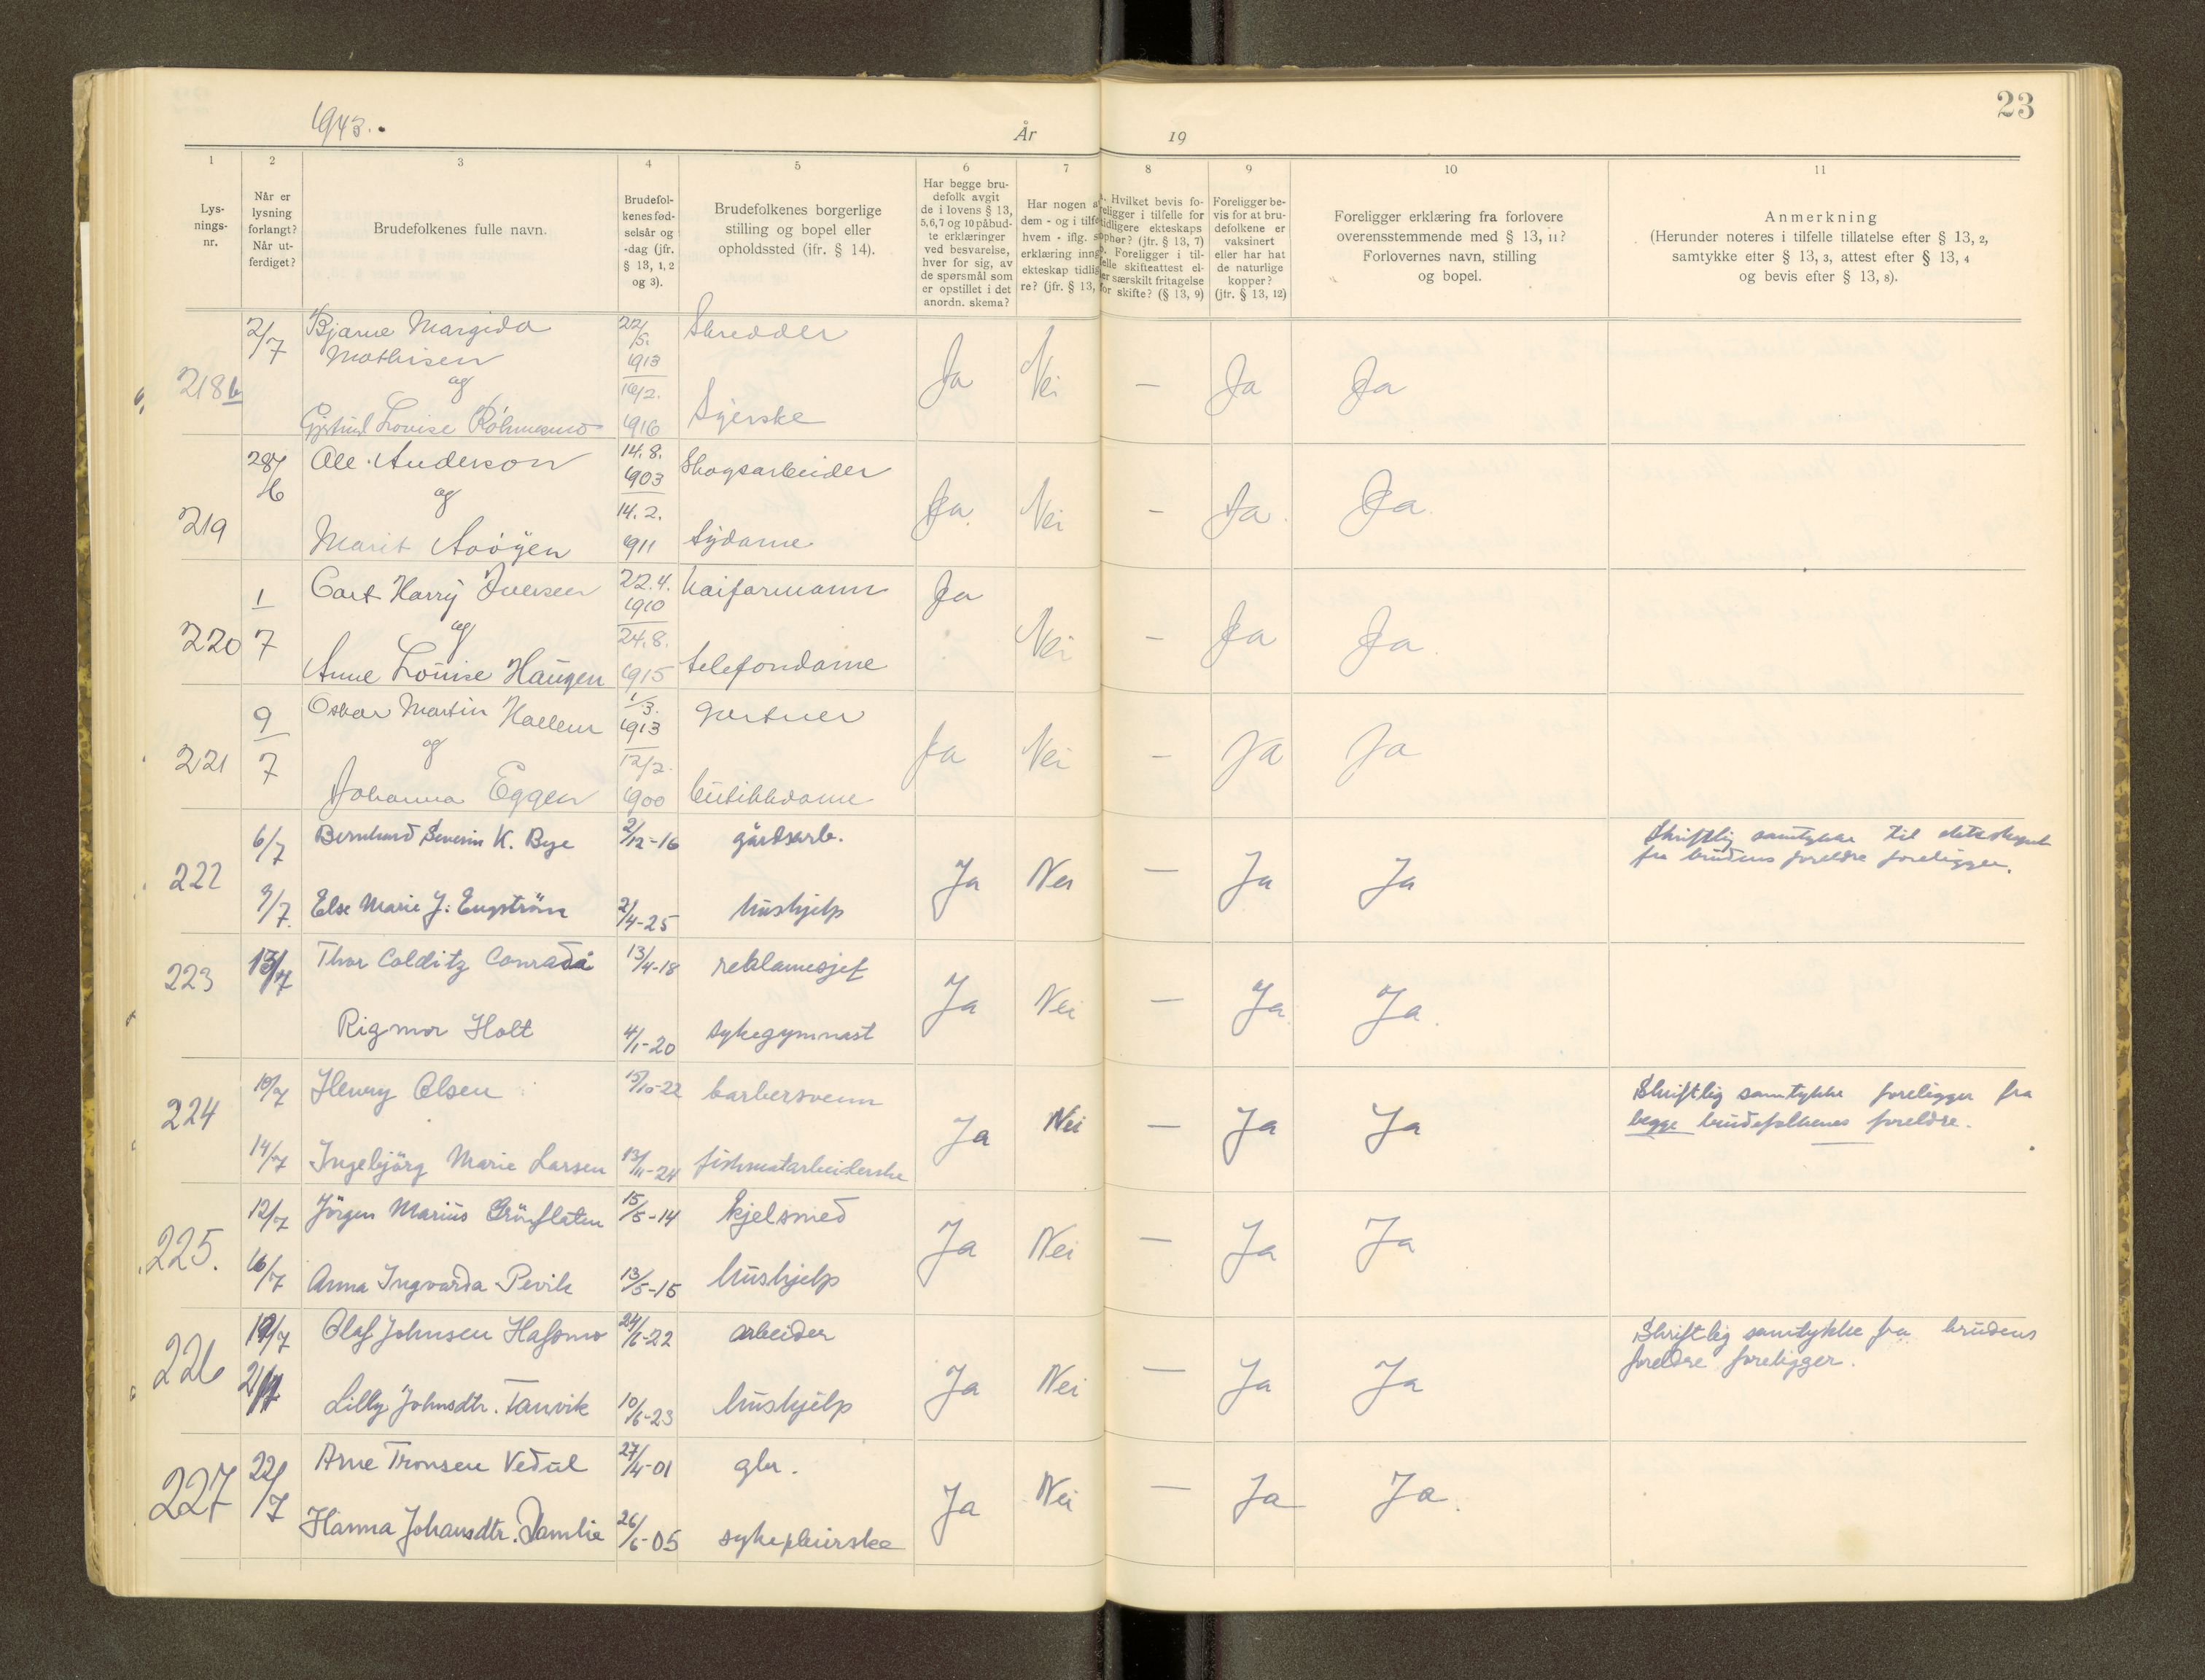 1943.
År
19
23
1 2 3 4 5 6 7 8 9 10 11
Lys-
nings-
nr.
Når er
lysning
forlangt?
Når ut-
ferdiget?
Brudefolkenes fulle navn.
Brudefol-
kenes fød-
selsår og
-dag (jfr.
§ 13, 1, 2
og 3).
Brudefolkenes borgerlige
stilling og bopel eller
opholdssted (ifr. § 14).
Har begge bru-
defolk avgit
de i lovens § 13,
5,6,7 og 10 påbud-
te erklæringer
ved besvarelse,
hver for sig, av
de spørsmål som
er opstillet i det
anordn. skema?
Har nogen a
dem - og i tilfe
hvem - iflg. s
erklæring inng
ekteskap tidlig
re? (jfr. § 13,
Hvilket bevis fo-
religger i tilfelle for
tidligere ekteskaps
ophør? (jfr. § 13, 7)
Foreligger i til-
felle skifteattest el-
er særskilt fritagelse
for skifte? (§ 13, 9)
Foreligger be-
vis for at bru-
defolkene er
vaksinert
eller har hat
de naturlige
kopper?
(jfr. § 13, 12)
Foreligger erklæring fra forlovere
overensstemmende med § 13, 11?
Forlovernes navn, stilling
og bopel.
Anmerkning
(Herunder noteres i tilfelle tillatelse efter § 13, 2,
samtykke efter § 13, 3, attest efter § 13, 4
og bevis efter § 13, 8).
218b 2/7 Bjarne Margido 22/5. Skredder
Mathisen 1913
og 16/2. Ja Nei — Ja Ja
Louise 1916 Syerske
219 Ole Anderson 14.8. Skogsarbeider
1903
og Ja Nei - Ja. Ja.
14.2.
Marit 1911 Sydame
220 1/7 Carl Harry Iversen 22.4. Ja
1910
og 24.8. Nei - Ja Ja.
Anne Louise Haugen 1915 telefondame
221 9/7 Oskar Martin 1/3. gartner
1913
og 12/2. Ja Nei - Ja Ja
Johanna Eggen 1900 butikkdame
222 6/7 Bernhard Severin K. Bye 2/12-16 gårdsarb. Ja Nei — Ja Ja Skriftlig samtykke til ekteskapet
fra brudens foreldre foreligger.
9/7. Else Marie J. Engström 2/4-25 hushjelp
223 13/7 Thor Colditz 13/4-18 reklamesjef Ja Nei — Ja. Ja.
Rigmor Holt 4/1-20 sykegymnast
224 10/7 Henry Olsen 15/10-22 barbersvenn Ja Nei — Ja Ja Skriftlig samtykke foreligger fra
begge brudefolkenes foreldre.
14/7 Ingebjörg Marie Larsen 13/11-24 fiskmatarbeiderske
225. 12/7 Jörgen Marius Grönflaten 15/5-14 kjelsmed Ja Nei — Ja Ja
16/7 Anna Ingvarda Pevik 13/5-15 hushjelp
226 19/7 Olaf Johnsen Hafsmo 24/6-22 arbeider Ja Nei — Ja Ja Skriftlig samtykke fra brudens
foreldre foreligger.
21/7 Lilly Johnsdtr. Tanvik 10/6-23 hushjelp
227 22/7 Arne Tronsen Vedul 27/4-01 gbr. Ja Nei — Ja Ja.
Hanna Johansdtr. Damlie 26/6-05 sykepleierske